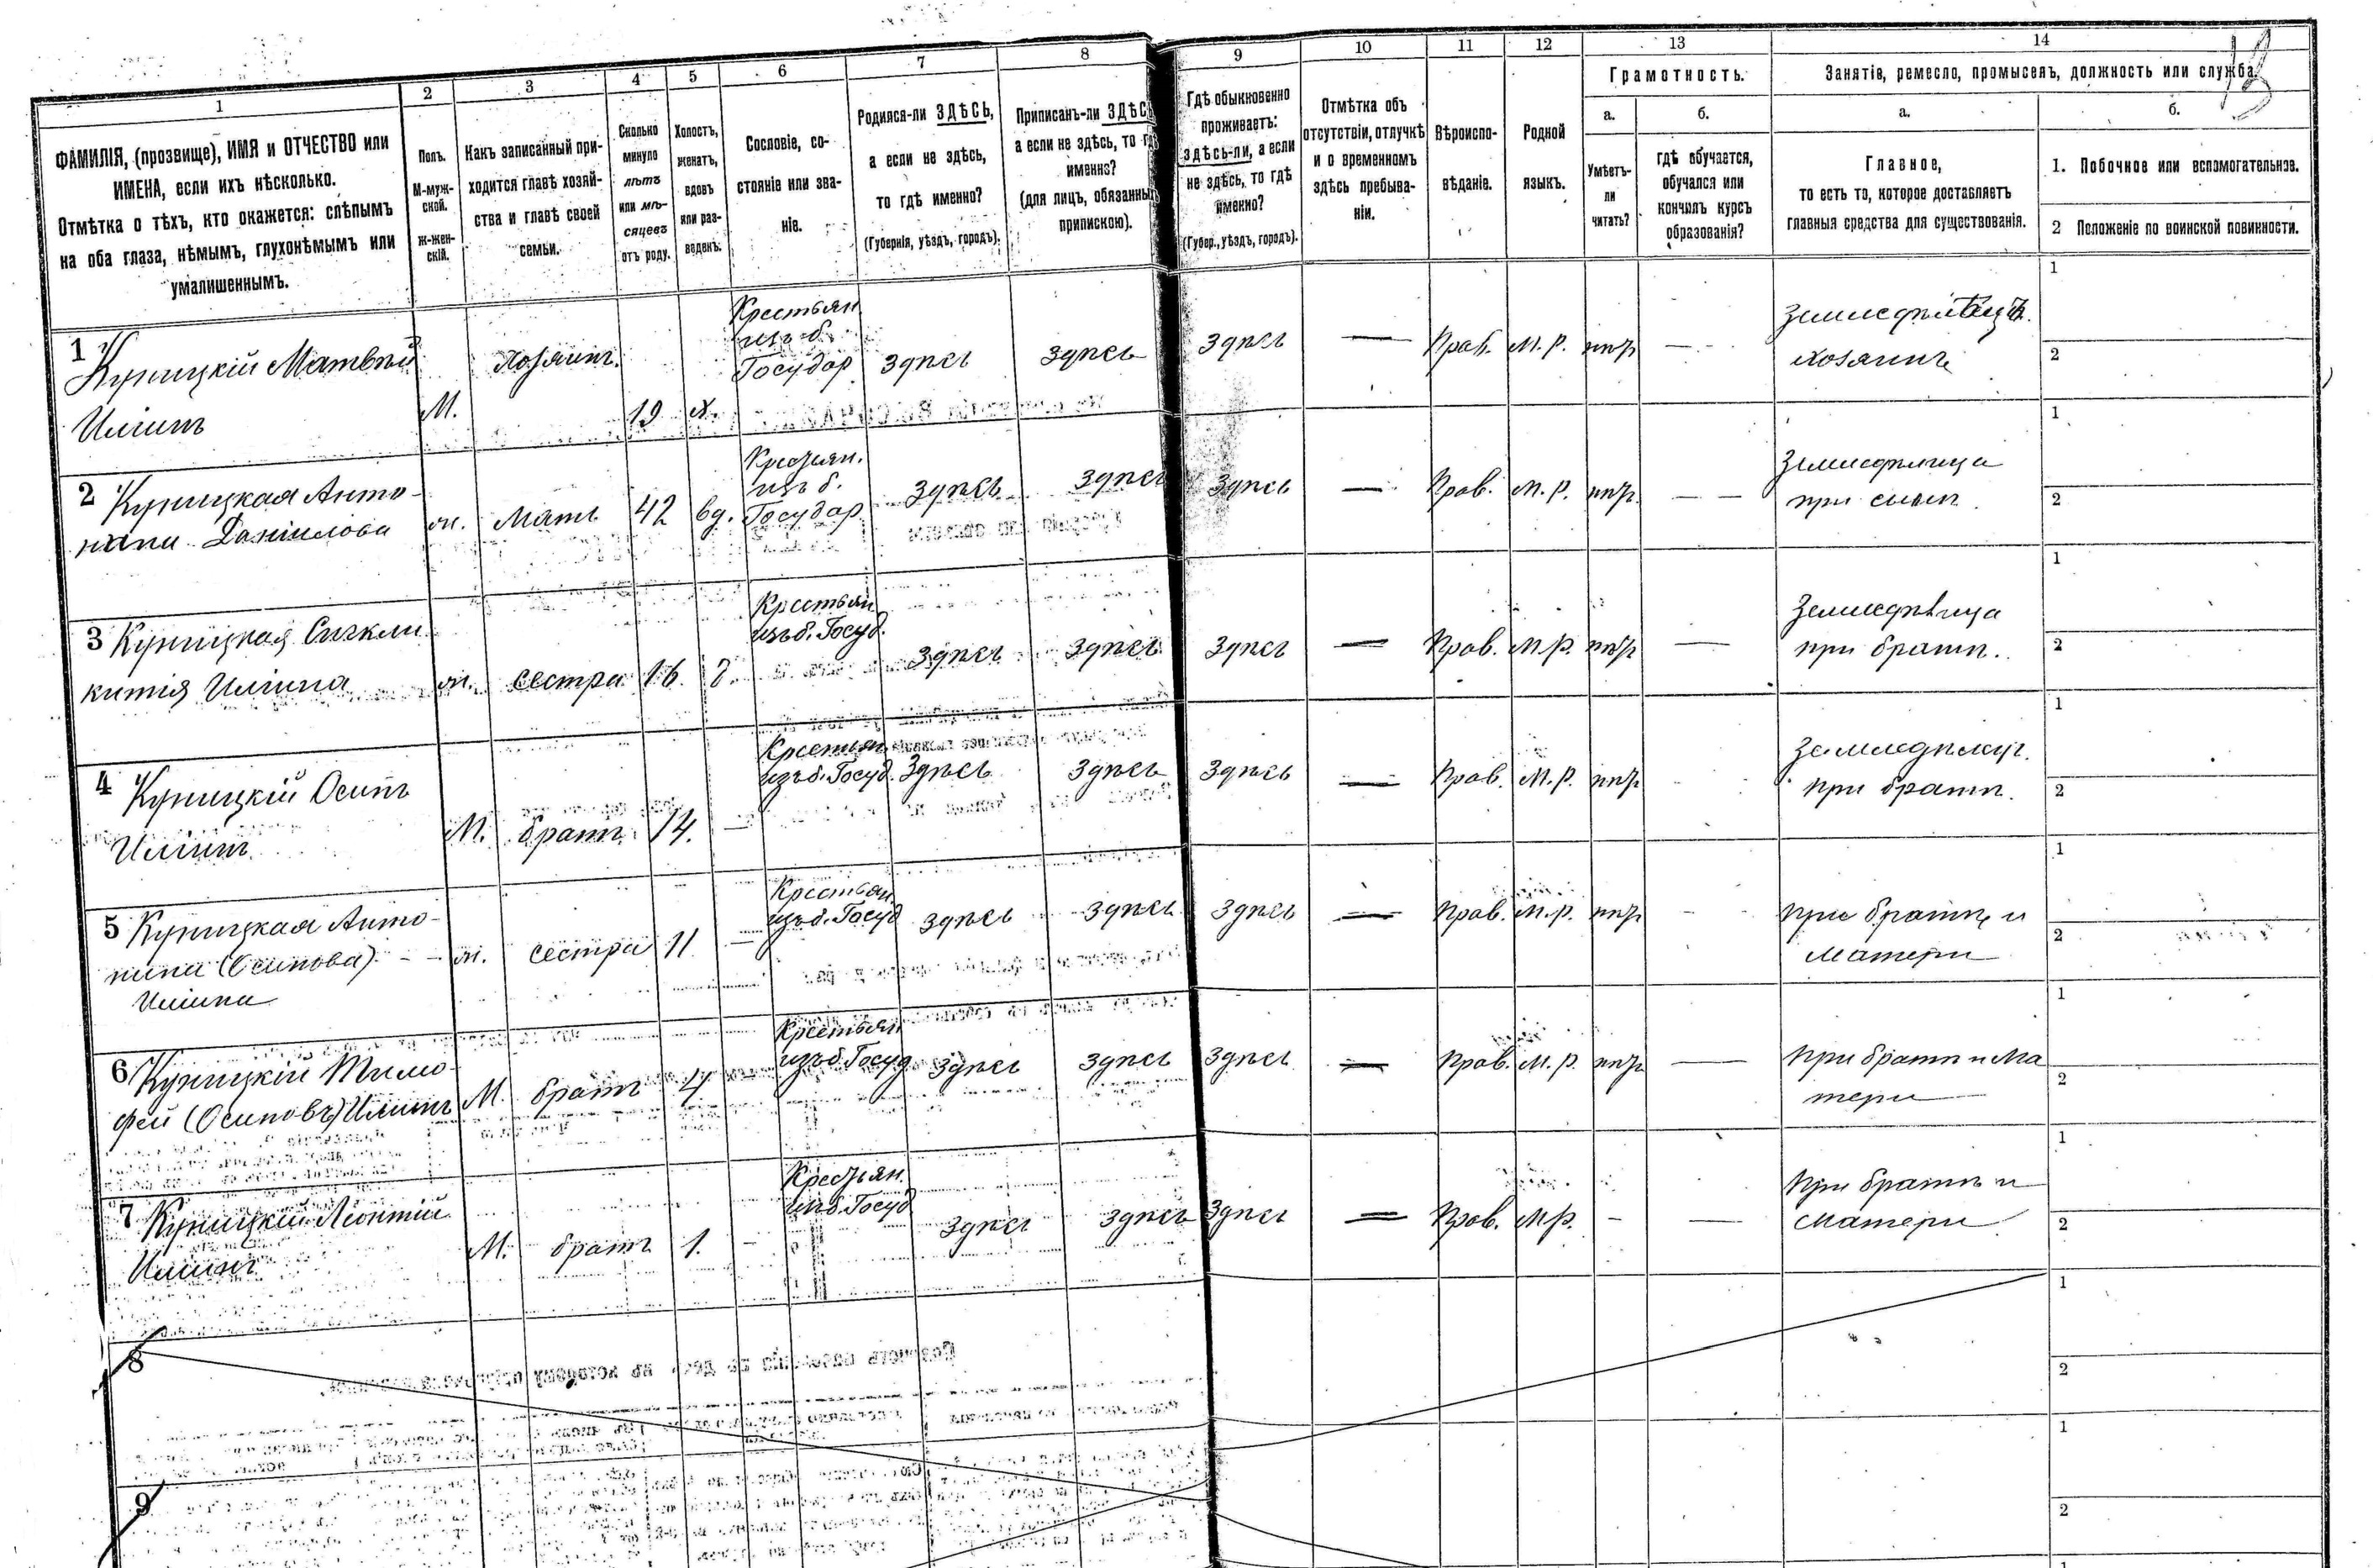 1
2
3
4
5
6
7
8
9
10
11
12
13
14
ФАМИЛІЯ, (прозвище), ИМЯ и ОТЧЕСТВО или
ИМЕНА, если ихъ нѣсколько.
Отмѣтка о тѣхъ, кто окажется: слѣпымъ
на оба глаза, нѣмымъ, глухонѣмымъ или
умалишеннымъ.
Полъ.
М-муж-
ской.
Ж-жен-
скій.
Какъ записанный при-
ходится главѣ хозяй-
ства и главѣ своей
семьи.
Сколько
минуло
лѣтъ
или мѣ-
сяцевъ
отъ роду.
Холостъ,
женатъ,
вдовъ
или раз-
веденъ.
Сословіе, со-
стояніе или зва-
ніе.
Родился-ли ЗДѢСЬ,
а если не здѣсь,
то гдѣ именно?
(Губернія, уѣздъ, городъ).
Приписанъ-ли ЗДѢСЬ
а если не здѣсь, то гдѣ
именно?
(для лицъ, обязанныхъ
припискою).
Гдѣ обыкновенно
проживаетъ:
здѣсь-ли, а если
не здѣсь, то гдѣ
именно?
(Губер., уѣздъ, городъ).
Отмѣтка объ
отсутствіи, отлучкѣ
и о временномъ
здѣсь пребыва-
ніи.
Вѣроиспо-
вѣданіе.
Родной
языкъ.
Грамотность.
а.
Умѣетъ-
ли
читать?
б.
гдѣ обучается,
обучался или
кончилъ курсъ
образованія?
Занятіе, ремесло, промыселъ, должность или служба.
а.
Главное,
то есть то, которое доставляетъ
главныя средства для существованія.
б.
1. Побочное или вспомогательное.
2 Положеніе по воинской повинности.
1 Куницкій Матвѣй
Иліинъ
М. Хозяинъ. 19 х.
Крестьян
изъ б.
Государ
здѣсь здѣсь здѣсь — Прав. М. Р. нѣт —
Земледѣлецъ.
хозяинъ
1
2
2 Куницкая Анто-
нина Даніилова
ж. Мать 42 вд.
Крестьян.
изъ б.
Государ.
здѣсь здѣсь здѣсь — Прав. М. Р. нѣт — —
Земледѣлица
при сынѣ
1
2
3 Куницкая Сигкли
китія Иліина
ж. сестра 16
Крестьян
изъ б. Госуд.
здѣсь здѣсь здѣсь — Прав. М. Р. нѣт —
Земледѣлица
при братѣ.
1
2
4 Куницкій Осипъ
Иліинъ
М. братъ 14. —
Крестьян
изъ б. Госуд.
здѣсь здѣсь здѣсь — Прав. М. Р. нѣт
при братѣ.
1
2
5 Куницкая Анто-
нина (Осипова) - -
Иліина
ж. сестра 11 —
Крестьян
изъ б. Госуд
здѣсь здѣсь здѣсь — Прав. М. Р. нѣт -
при братѣ и
матери
1
2
6 Куницкій Тимо-
фей (Осиповъ) Иліинъ
М. братъ 4
Крестьян
изъ б. Госуд
здѣсь здѣсь здѣсь — Прав. М. Р. нѣт —
при братѣ и ма
тери
1
2
7 Куницкій Леонтій
Иліинъ
М. братъ 1. -
Крестьян.
изъ б. Госуд
здѣсь здѣсь здѣсь — Прав. М. Р. - —
при братѣ и
матери
1
2
8
1
2
9
1
2
1